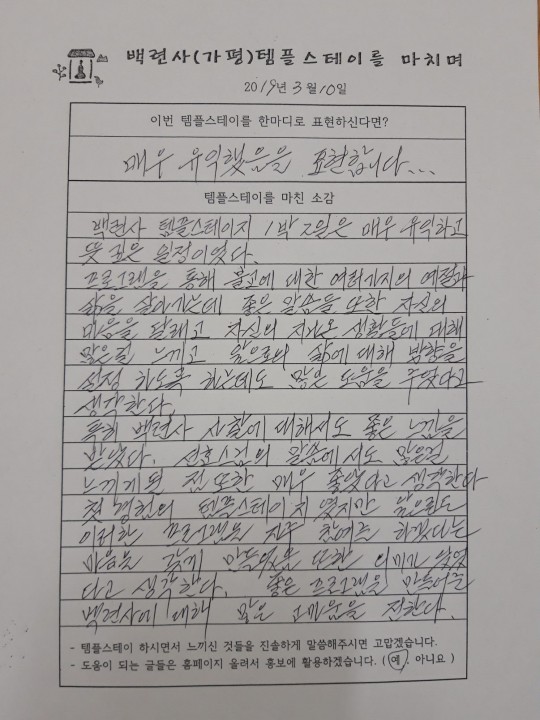 백련사(가평)템플스테이를 마치며
2019년 3월 10일
이번 템플스테이를 한마디로 표현하신다면?
매우 유익했음을 표현합니다...
템플스테이를 마친 소감
백련사 템플스테이지 1박 2일은 매우 유익하고
뜻 깊은 일정이었다.
프로그램을 통해 불교에 대한 여러가지의 예절과
삶을 살아가는데 좋은 말씀들 또한 자신의
마음을 달래고 자신의 지나온 생활들에 대해
많은걸 느끼고 앞으로의 삶에 대해 방향을
설정 하도록 하는데도 많은 도움을 주었다고
생각한다.
특히 백련사 사찰에 대해서도 좋은 느낌을
받았다. 선호스님의 말씀에서도 많은걸
느끼게된 점 또한 매우 좋았다고 생각한다
첫 경험의 템플스테이지 였지만 앞으로도
이러한 프로그램을 자주 참여를 하겠다는
마음을 갖게 만들었음 또한 의미가 있었
다고 생각한다. 좋은 프로그램을 만들어준
백련사에 대해 많은 고마움을 전한다.
- 템플스테이 하시면서 느끼신 것들을 진솔하게 말씀해주시면 고맙겠습니다.
- 도움이 되는 글들은 홈페이지 올려서 홍보에 활용하겠습니다. ( 예. 아니요 )